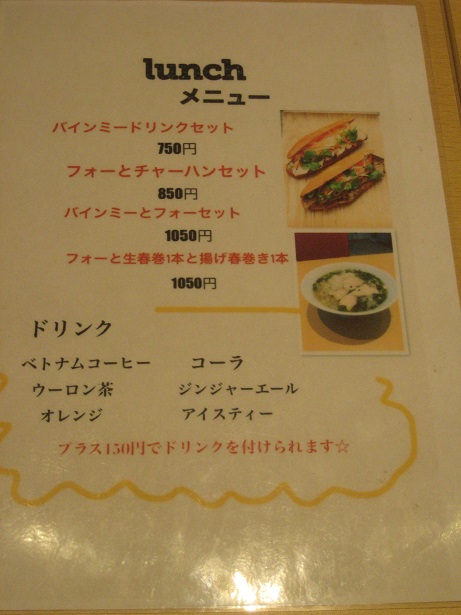 lunch
メニュー
バインミードリンクセット
750円
フォーとチャーハンセット
850円
バインミーとフォーセット
1050円
フォーと生春巻1本と揚げ春巻き1本
1050円
ドリンク
ベトナムコーヒー コーラ
ウーロン茶 ジンジャーエール
オレンジ アイスティー
プラス150円でドリンクを付けられます☆